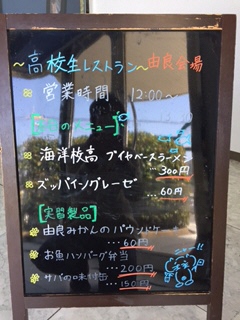 ～高校生レストラン～ 由良会場
営業時間 12:00～
[本日のメニュー]
海洋枝高 ブイヤベースラーメン
…300円
ズッパイングレーゼ
…60円
[実習製品]
由良みかんのパウンドケーキ
…60円
お魚ハンバーグ弁当
…200円
サバの味噌缶
…150円